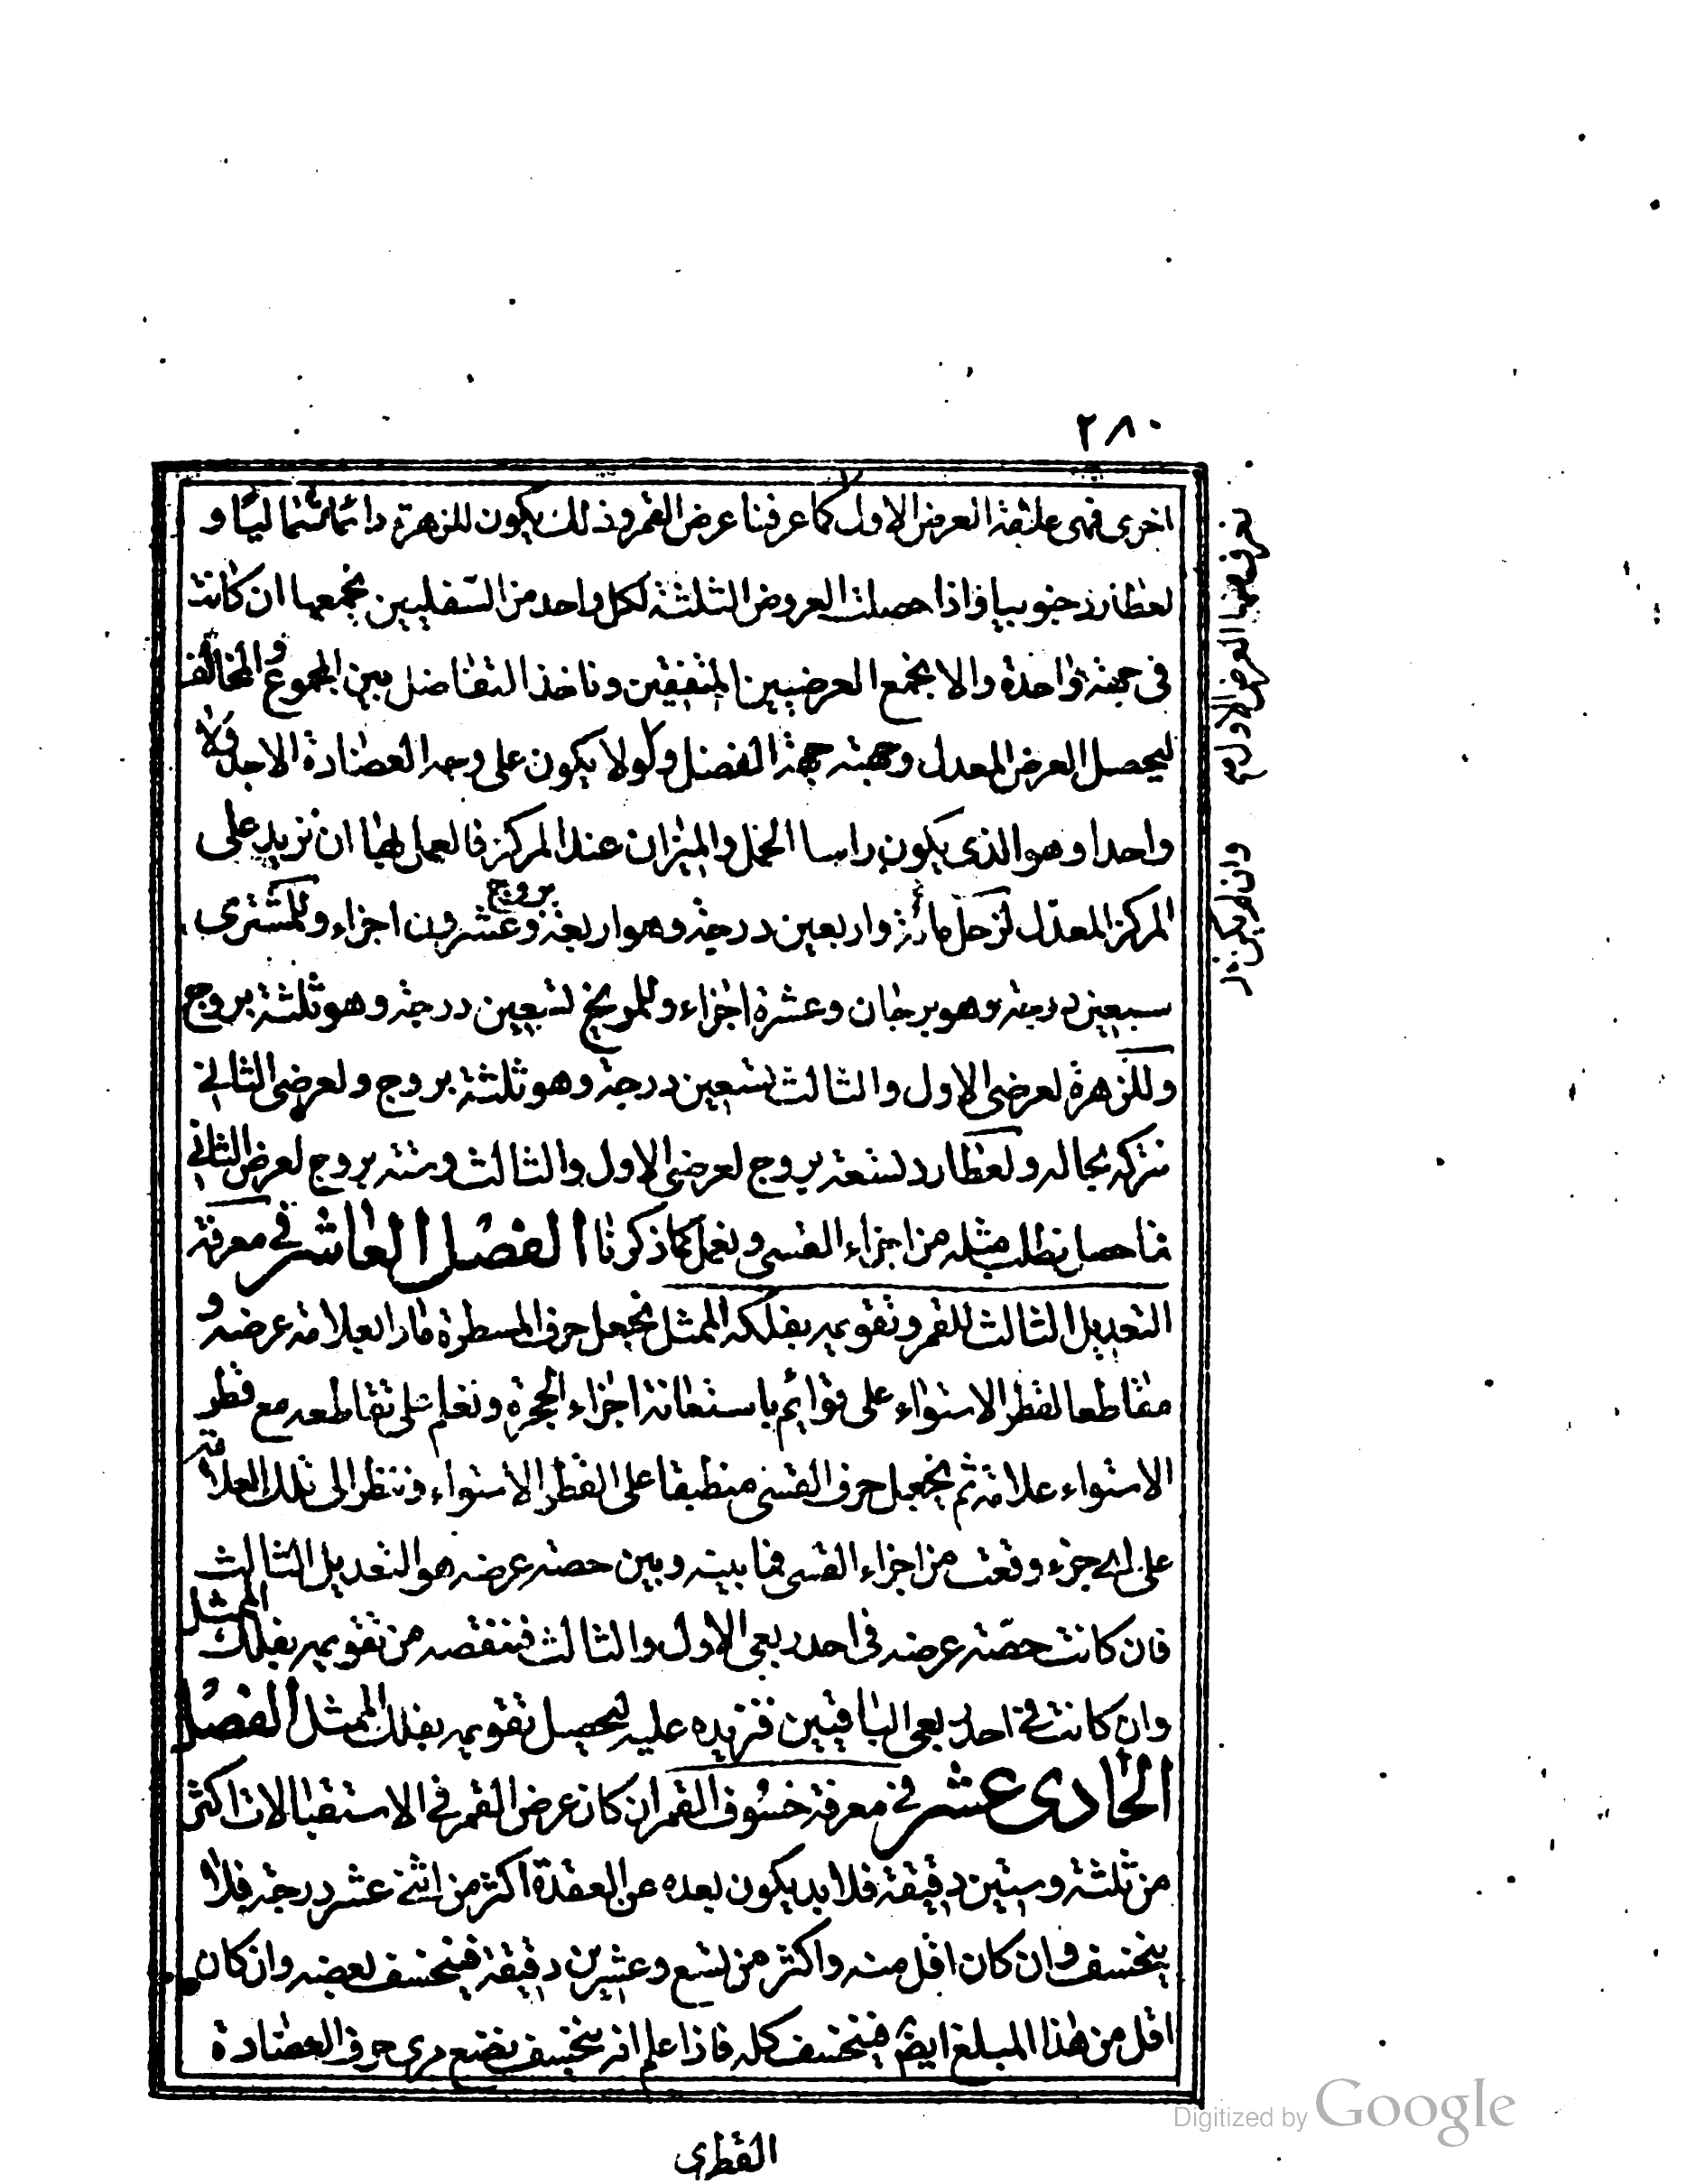 ٢٨٠
اخرى فهى علثقة العرض الاول كما عرفنا عرض القمر وذلك يكون للزهرة دائما شماليا و
لعطارد جنوبيا فاذا حصلت العروض الثلثة لكل واحد من السفليين نجمعها ان كانت
فى جهة واحدة والا نجمع العرضين المتفقين وناخذ التفاضل بين المجموع والمخالف
ليحصل العرض المعدل وجهته جهة الفضل ولو لا يكون على وجه العضادة الا جدولا
واحدا وهو الذى يكون راسا الحمل والميزان عند المركز فالعمل لها ان نزيد على
المركز المعدل لزحل مائة واربعين درجة وهو اربعة بروج وعشرون اجزاء وللمشترى
سبعين درجة وهو برجان وعشرة اجزاء وللمريخ تسعين درجة وهو ثلثة بروج
وللزهرة لعرضى الاول والثالث تسعين درجة وهو ثلثة بروج ولعرضى الثانى
نتركه بحاله ولعطارد تسعة بروج لعرضى الاول والثالث وستة بروج لعرض الثانى
فما حصل نطلب مثله من اجزاء القسى ونعمل كما ذكرنا الفصل العاشر فى معرفة
التعديل الثالث للقمر وتقويمه بفلكه الممثل نجعل حرف المسطرة مارا بعلامة عرضه و
مقاطعا لقطر الاستواء على قوائم باستعانة اجزاء الحجرة ونعلم على تقاطعه مع قطر
الاستواء علامة ثم نجعل حرف القسى منطبقا على القطر الاستواء وننظر الى تلك العلامة
على اى جزء وقعت من اجزاء القسى فما بينه وبين حصة عرضه هو التعديل الثالث
فان كانت حصة عرضه فى احد ربعى الاول والثالث فننقصه من تقويمه بفلك الممثل
وان كانت فى احد ربعى الباقيين فنزيده عليه ليحصل تقويمه بفلك الممثل الفصل
الحادى عشر فى معرفة خسوف القمر ان كان عرض القمر فى الاستقبالات اكثر
من ثلثة وستين دقيقة فلا بد يكون بعده عن العقدة اكثر من اثنى عشر درجة فلا
ينخسف وان كان اقل منه واكثر من تسع وعشرين دقيقة فينخسف بعضه وان كان
اقل من هذا المبلغ ايضا فينخسف كله فاذا علم انه ينخسف نضع مرى حرف العضادة
القطرى
العرض الاول